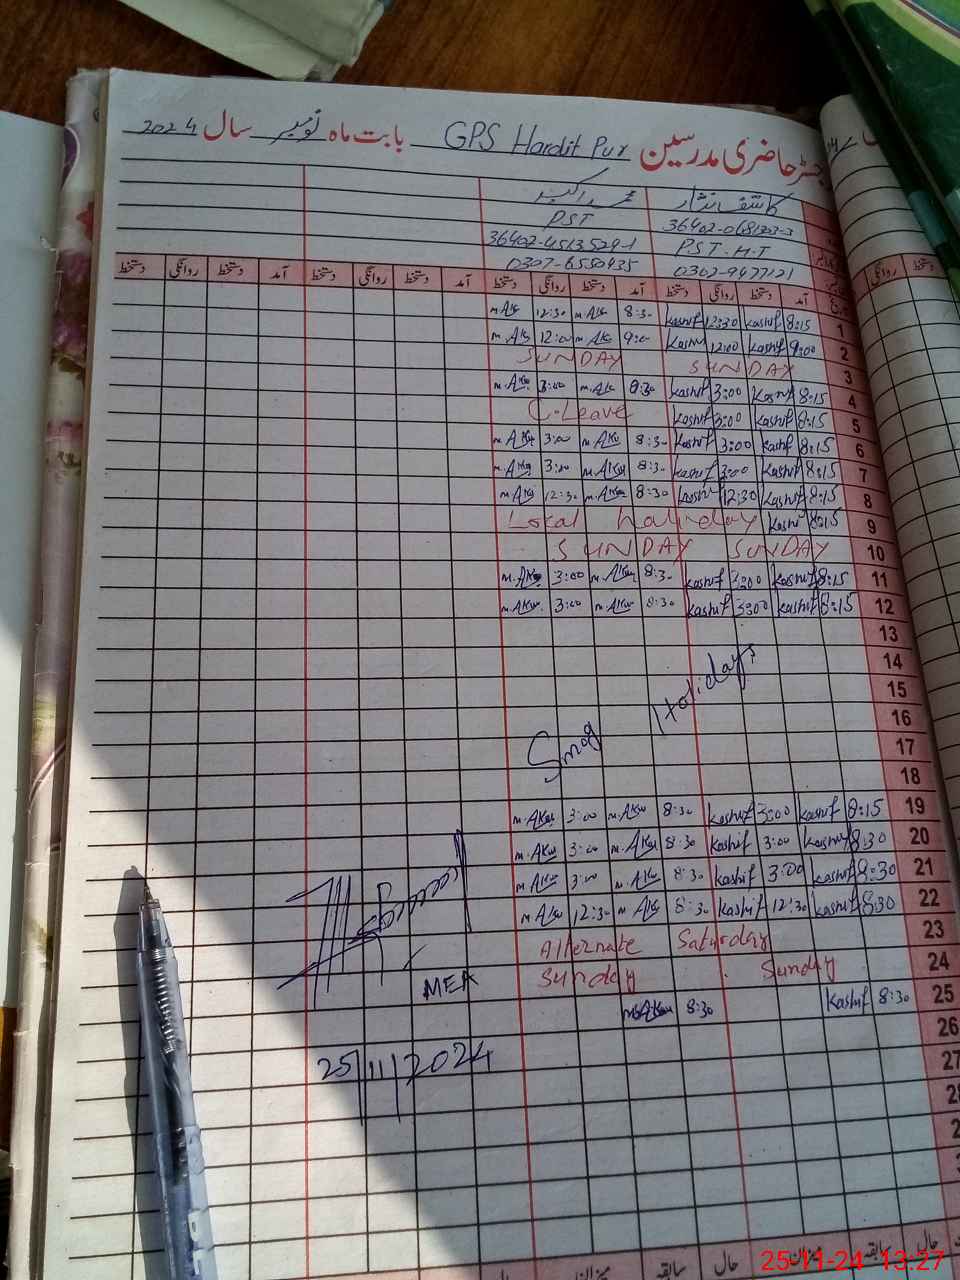 رجسٹر حاضری مدرسین GPS Hardit Pur بابت ماہ نومبر سال 2024
کاشف نثار محمد اکبر
36402-0681203-3 PST
P.S.T-H.T 36402-4513529-1
0302-9477121 0307-6550435
آمد دستخط روانگی دستخط آمد دستخط روانگی دستخط آمد دستخط روانگی دستخط آمد دستخط روانگی دستخط
1 8:15 Kashif 12:30 Kashif 8:30 M.Ak 12:30 M.Ak
2 9:00 Kashif 12:00 Kashif 9:00 M.Ak 12:00 M.Ak
3 SUNDAY SUNDAY
4 8:15 Kashif 3:00 Kashif 8:30 M.Ak 3:00 M.Ak
5 8:15 Kashif 3:00 Kashif C.Leave
6 8:15 Kashif 3:00 Kashif 8:30 M.Ak 3:00 M.Ak
7 8:15 Kashif 3:00 Kashif 8:30 M.Ak 3:00 M.Ak
8 8:15 Kashif 12:30 Kashif 8:30 M.Ak 12:30 M.Ak
9 8:15 Kashif Local
10 SUNDAY SUNDAY
11 8:15 Kashif 3:00 Kashif 8:30 M.Ak 3:00 M.Ak
12 8:15 Kashif 3:00 Kashif 8:30 M.Ak 3:00 M.Ak
13
14
15
16
17
18
Smog Holidays
19 8:15 Kashif 3:00 Kashif 8:30 M.Ak 3:00 M.Ak
20 8:30 Kashif 3:00 Kashif 8:30 M.Ak 3:00 M.Ak
21 8:30 Kashif 3:00 Kashif 8:30 M.Ak 3:00 M.Ak
22 8:30 Kashif 12:30 Kashif 8:30 M.Ak 12:30 M.Ak
23 Alternate Saturday
24 Sunday Sunday
25 8:30 Kashif 8:30 M.Ak
26
27
MEA
25/11/2024
حال سابقہ میزان حال سابقہ میزان
25-11-24 13:27